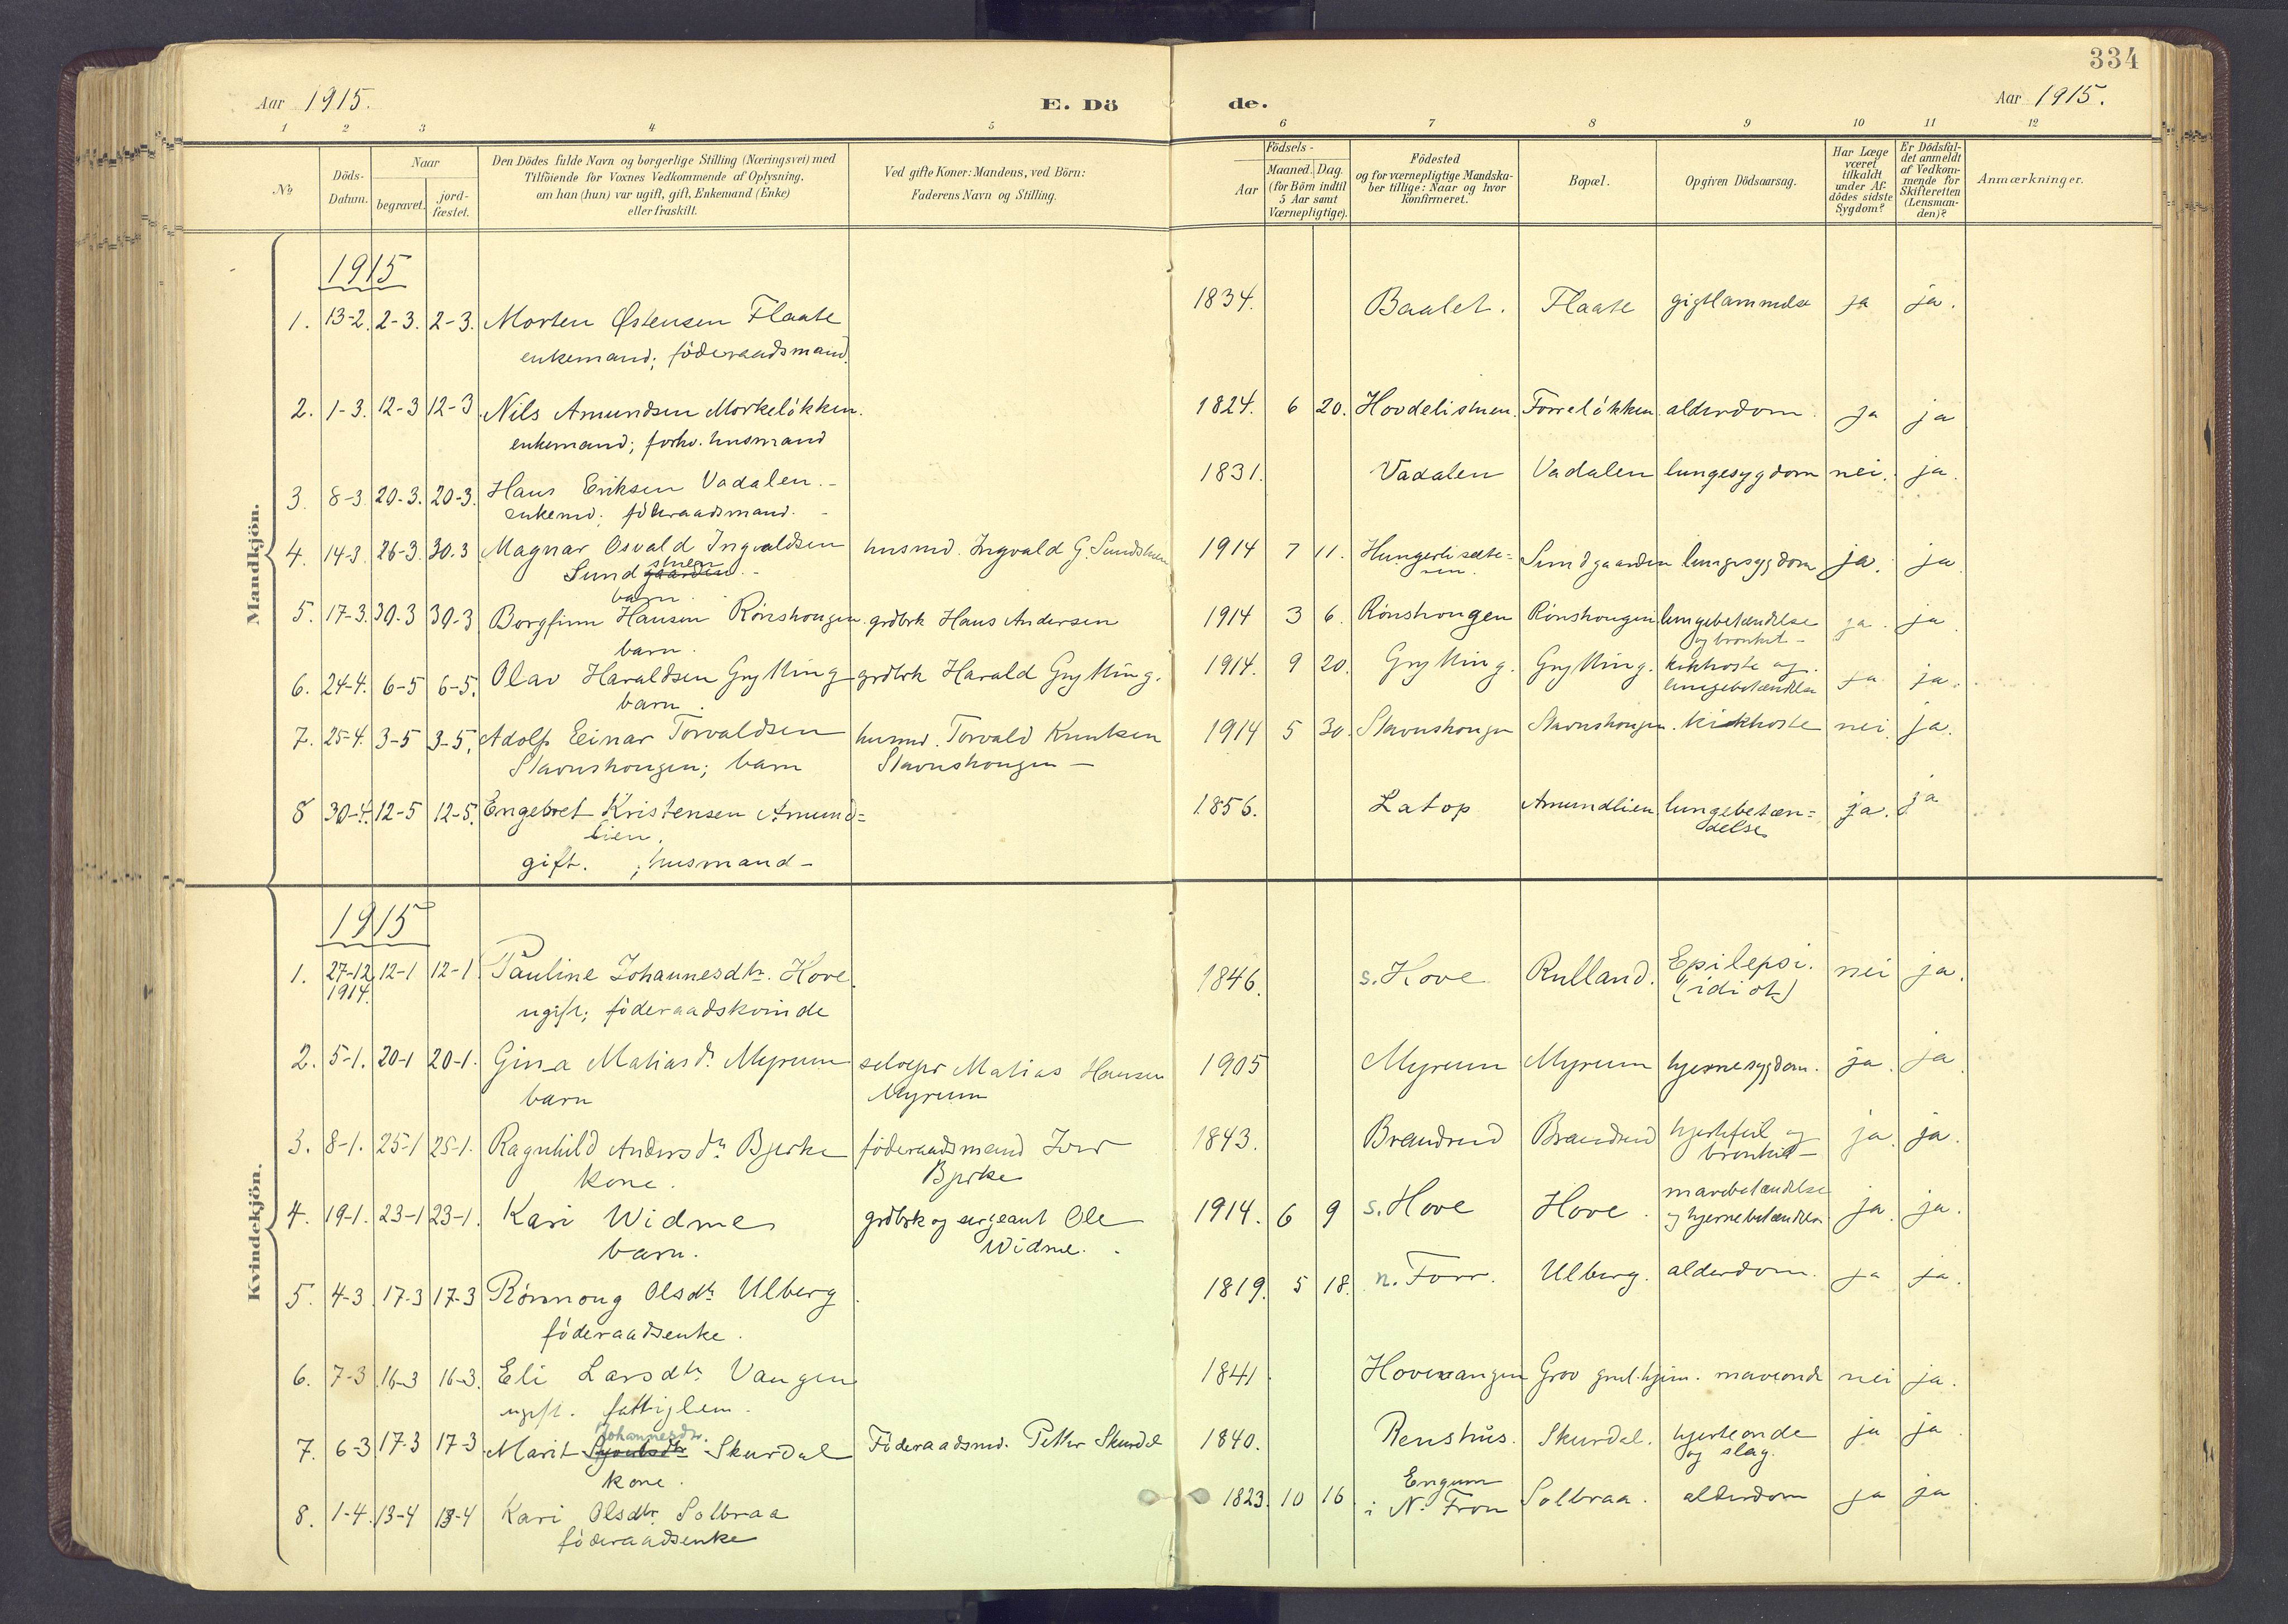 334
Aar 1915.
E. Dö
de.
Aar 1915.
1 2 3 4 5 6 7 8 9 10 11 12
№
Döds-
Datum.
Naar
begravet.
jord-
fæstet.
Den Dödes fulde Navn og borgerlige Stilling (Næringsvei) med
Tilföiende for Voxnes Vedkommende af Oplysning,
om han (hun) var ugift, gift, Enkemand (Enke)
eller fraskilt.
Ved gifte Koner: Mandens, ved Börn:
Faderens Navn og Stilling.
Födsels-
Aar
Maaned. Dag.
(for Börn indtil
5 Aar samt
Værnepligtige).
Födested
og for værnepligtige Mandska-
ber tillige: Naar og hvor
konfirmeret.
Bopæl.
Opgiven Dödsaarsag.
Har Læge
været
tilkaldt
under Af-
dödes sidste
Sygdom?
Er Dödsfal-
det anmeldt
af Vedkom-
mende for
Skifteretten
(Lensman-
den)?
Anmærkninger.
Mandkjön.
1915
1. 13-2. 2-3. 2-3. Morten Østensen Flaate 1834. Baalet. Flaate gigtlammelse ja ja.
enkemand; föderaadsmand.
2. 1-3. 12-3 12-3 Nils Amundsen Morkeløkken. 1824. 6 20. Hovdelistuen. Forreløkken alderdom. ja ja
enkemand; forhv. husmand
3. 8-3. 20-3. 20-3. Hans Eriksen Vadalen. - 1831. Vadalen Vadalen lungesygdom nei. ja.
enkemd. föderaadsmand. -
4. 14-3. 26-3 30.3 Magnar Osvald Ingvaldsen husmd. Ingvald G. Sundstuen 1914 7 11. Sundgaarden lungesygdom ja. ja
stuen
Sundgaarden. -
barn.
5. 17-3. 30.3 30-3 Borgfinn Hansen Rønshougen. grdbrk Hans Andersen 1914 3 6. Rønshougen Rønshougen lungebetændelse ja. ja
barn. og bronkit -
6. 24-4. 6-5 6-5. Olav Haraldsen Grytting grdbrk Harald Grytting. 1914. 9 20. Grytting. Grytting. kikhoste og ja ja.
barn. lungebetændelse
7. 25-4. 3-5 3-5. Adolf Einar Torvaldsen husmd. Torvald Knutsen 1914 5 30. Stavnshougen Stavnshougen. kikhoste nei. ja.
Stavnshougen; barn Stavnshougen -
8 30-4. 12-5 12-5. Engebret Kristensen Amund= 1856. Latop Amundlien lungebetæn= ja. ja
lien. delse
gift. ; husmand -
Kvindekjön.
1915
1. 27-12 12-1 12-1. Pauline Johannesdtr. Hove. 1846. s. Hove Rulland. Epilepsi. nei ja.
1914. (idiot)
ugift; föderaadskvinde
2. 5-1. 20-1 20-1. Gina Matiasdr. Myrum selveier Matias Hansen 1905 Myrum Myrum hjernesygdom. ja. ja
barn Myrum
3. 8-1. 25-1 25-1. Ragnhild Andersdtr Bjerke föderaadsmand Iver 1843. Brandrud Brandrud hjertefeil og ja. ja.
kone. Bjerke bronkit -
4. 19-1. 23-1 23-1. Kari Widme grdbrk og sergeant Ole 1914. 6 9 s. Hove Hove. mavebetændelse ja. ja.
barn. Widme. og hjernebetændelse
5. 4-3 17-3 17-3 Rønnoug Olsdtr Ulberg 1819. 5 18. n. Forr. Ulberg. alderdom. ja ja.
föderaadsenke.
6. 7-3 16-3 16-3. Eli Larsdtr. Vangen 1841 Hovevangen Grov gml.hjem. maveonde nei ja.
ugift. fattiglem.
Johannesdtr.
7. 6-3 17-3 17-3 Marit Skurdal Föderaadsmd. Petter Skurdal 1840. Renshus. Skurdal. hjerteonde ja ja
kone. og slag.
8. 1-4. 13-4 13-4 Kari Olsdtr. Solbraa 1823. 10 16 Engum Solbraa. alderdom ja ja
i N. Fron
föderaadsenke